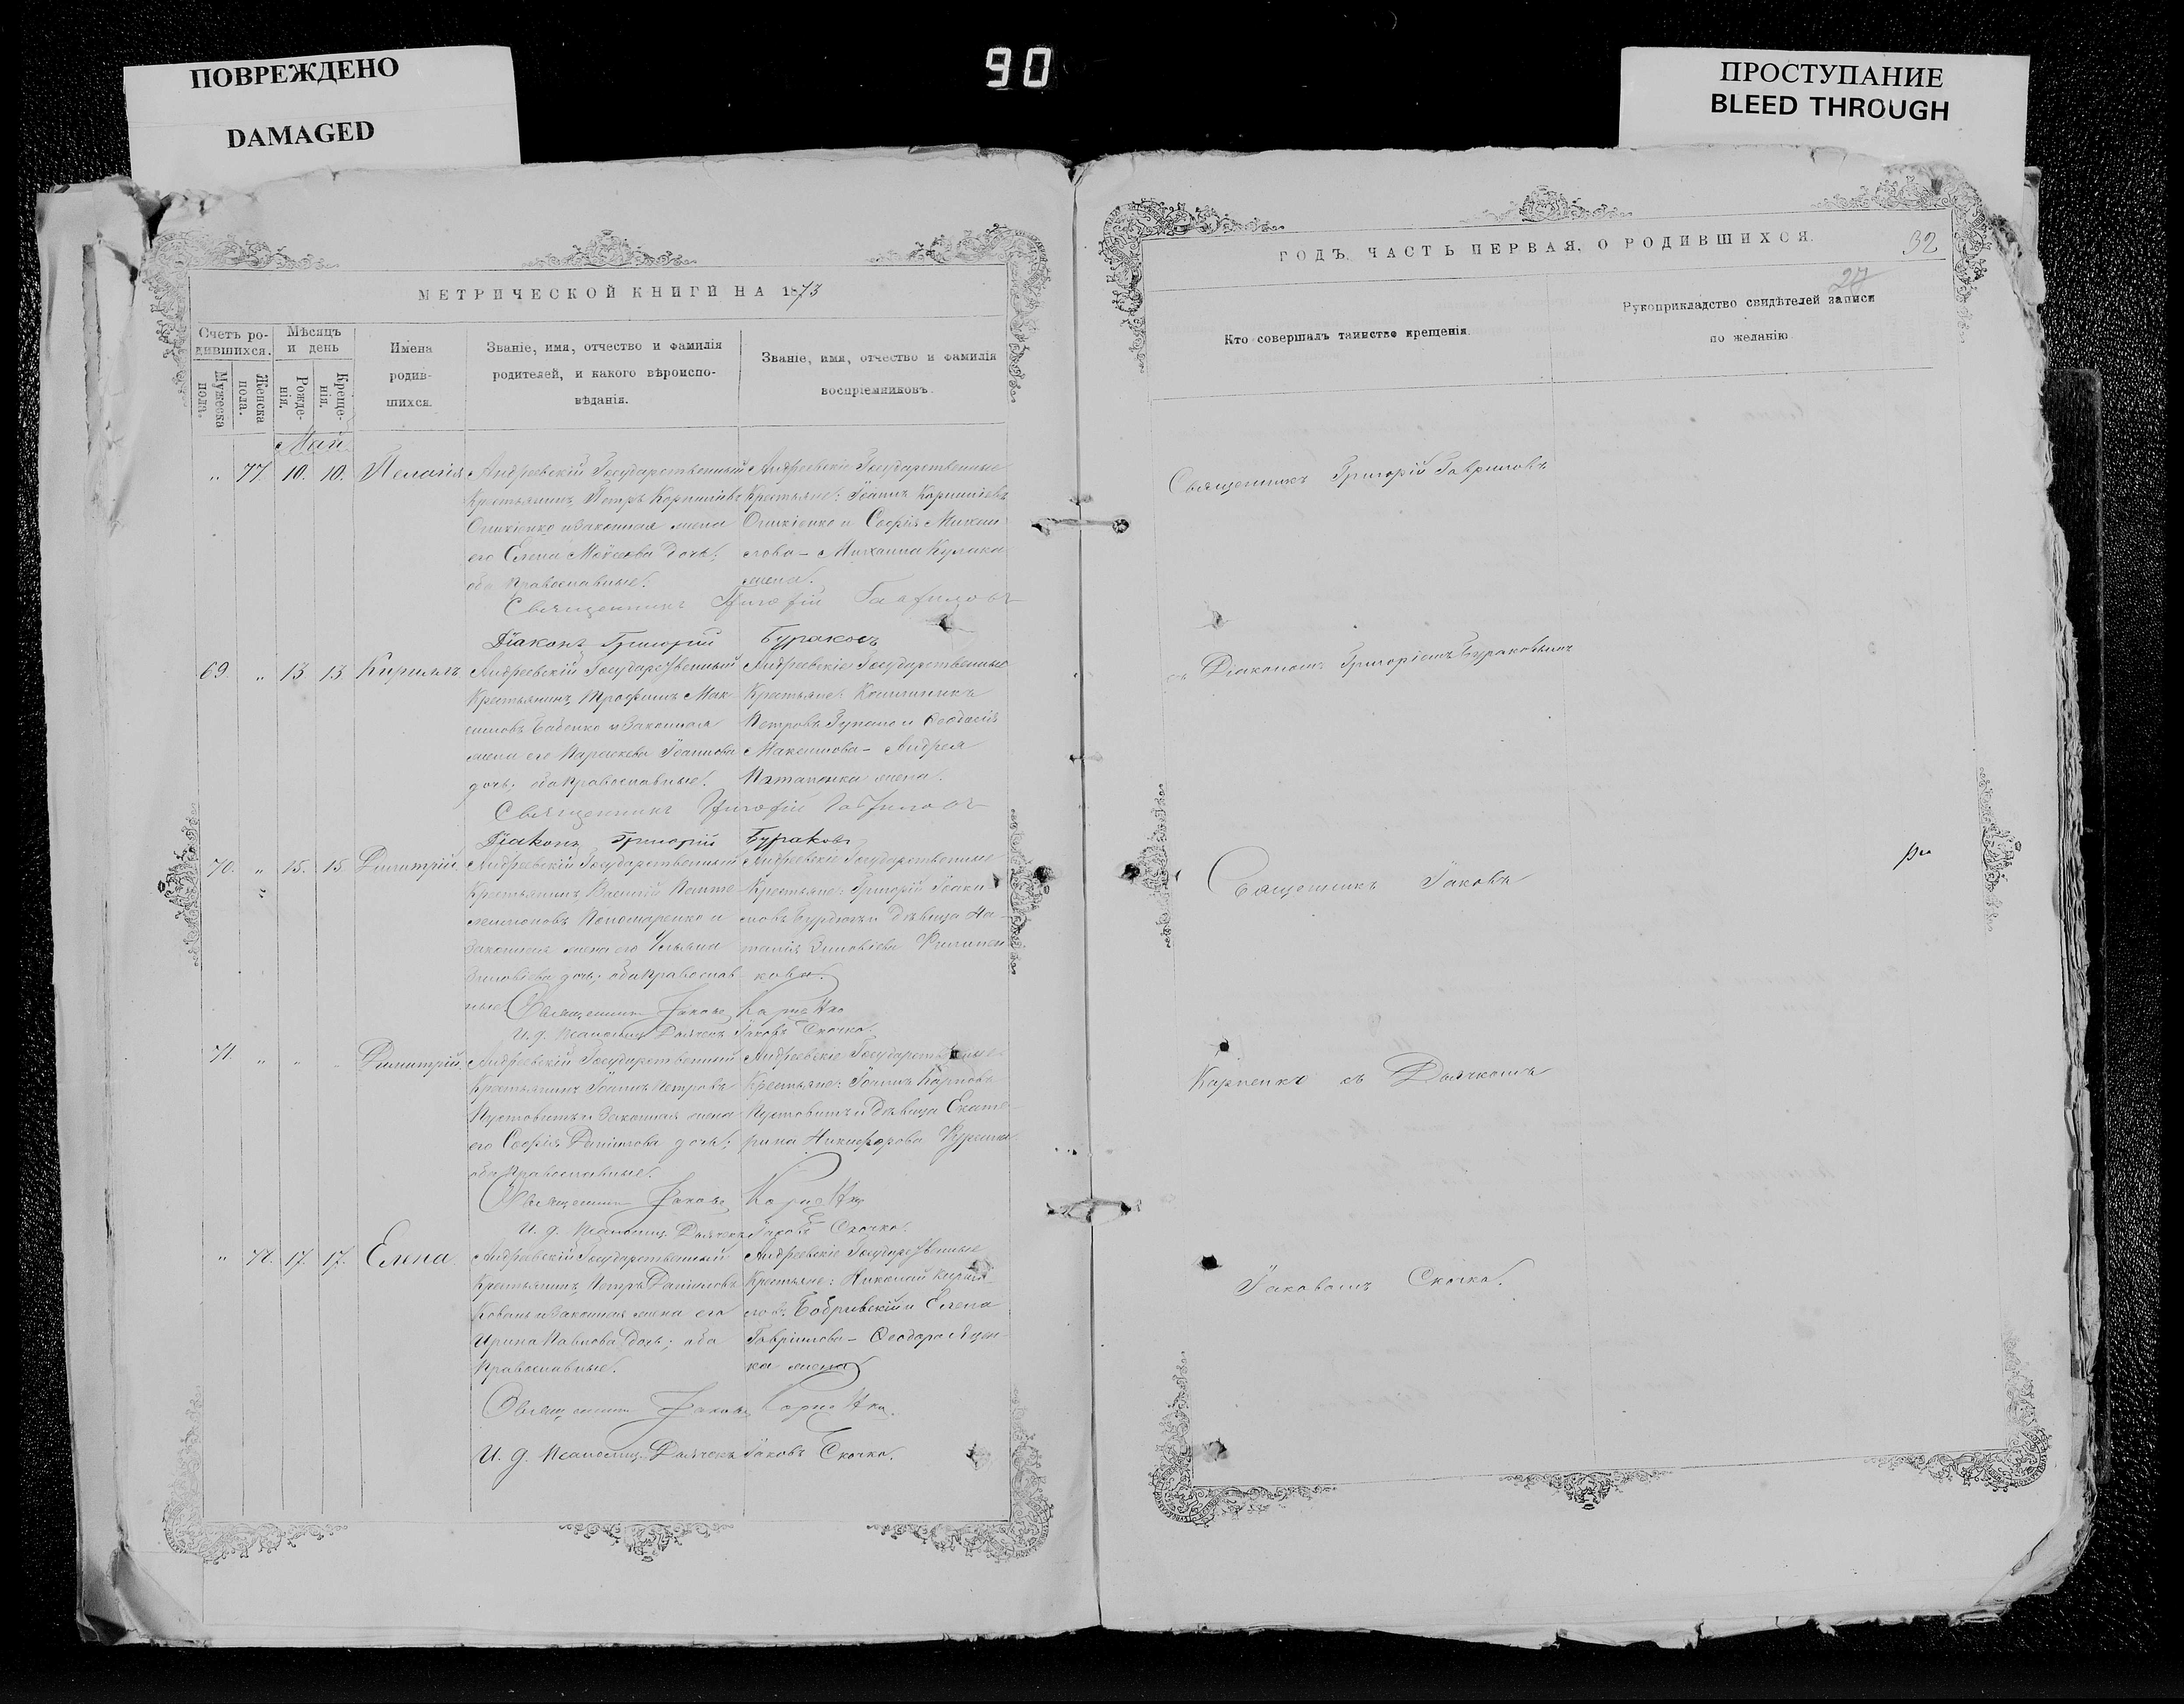 ПОВРЕЖДЕНО
DAMAGED
90
ПРОСТУПАНИЕ
BLEED THROUGH
МЕТРИЧЕСКОЙ КНИГИ НА 1873
Счетъ ро-
дившихся.
Мужеска
пола.
Женска
пола.
Мѣсяцъ
и день
Рожде-
нія.
Креще-
нія.
Имена
родив-
шихся.
Званіе, имя, отчество и фамилія
родителей, и какого вѣроиспо-
вѣданія.
Званіе, имя, отчество и фамилія
воспріемниковъ.
Май
„ 77 10. 10. Пелагія Андреевскій Государственный Андреевскіе Государственные
Крестьянинъ Петръ Корниліевъ Крестьяне: Іоаннъ Корниліевъ
и Законная жена и Софія
его Елена Моѵсеева дочь; Михаила Кулика
оба Православные. жена.
Священникъ Григорій Гавриловъ
Діаконъ Григорій Бураковъ
69 „ 13 13 Кириллъ Андреевскій Государственный Андреевскіе Государственные
Крестьянинъ Трофимъ Мак- Крестьяне:
симовъ Бабенко и Законная Петровъ и Ѳеодосія
жена его Параскева Іоаннова Максимова – Андрея
дочь; оба Православные. Потапенка жена.
Священникъ Григорій Гавриловъ
Діаконъ Григорій Бураковъ
70. „ 15. 15 Димитрій Андреевскій Государственный Андреевскіе Государственные
Крестьянинъ Василій Панте- Крестьяне: Григорій Іоаки-
леимоновъ Пономаренко и мовъ и Дѣвица На-
Законная жена его Ульяна талія Зиновіева Филипен-
Зиновіева дочь; оба Православ- кова.
ные. Священникъ Іаковъ Карпенко
И. д. Псаломщ. Дьячекъ Іаковъ Скочко.
71. „ „ „ Димитрій Андреевскій Государственный Андреевскіе Государственные
Крестьянинъ Іоаннъ Петровъ Крестьяне: Іоаннъ Карповъ
Пустовитъ и Законная жена Пустовитъ и Дѣвица Екате-
его Софія Даніилова дочь; рина Никифорова
оба Православные.
Священникъ Іаковъ Карпенко
И. д. Псаломщ. Дьячекъ Іаковъ Скочко.
„ 78. 17. 17. Елена Андреевскій Государственный Андреевскіе Государственные
Крестьянинъ Петръ Даніиловъ Крестьяне: Николай Кирил-
Коваль и Законная жена его ловъ Бобривскій и Елена
Ирина Павлова дочь; оба Гавріилова – Ѳеодора Яцен-
Православные. ка жена
Священникъ Іаковъ Карпенко.
И. д. Псаломщ. Дьячекъ Іаковъ Скочко.
ГОДЪ, ЧАСТЬ ПЕРВАЯ, О РОДИВШИХСЯ.
32
27
Кто совершалъ таинство крещенія.
Рукоприкладство свидѣтелей записи
по желанію
Священникъ Григорій Гавриловъ
съ Діакономъ Григоріемъ Бураковымъ
Священникъ Іаковъ
Карпенко съ Дьячкомъ
Іаковомъ Скочко.